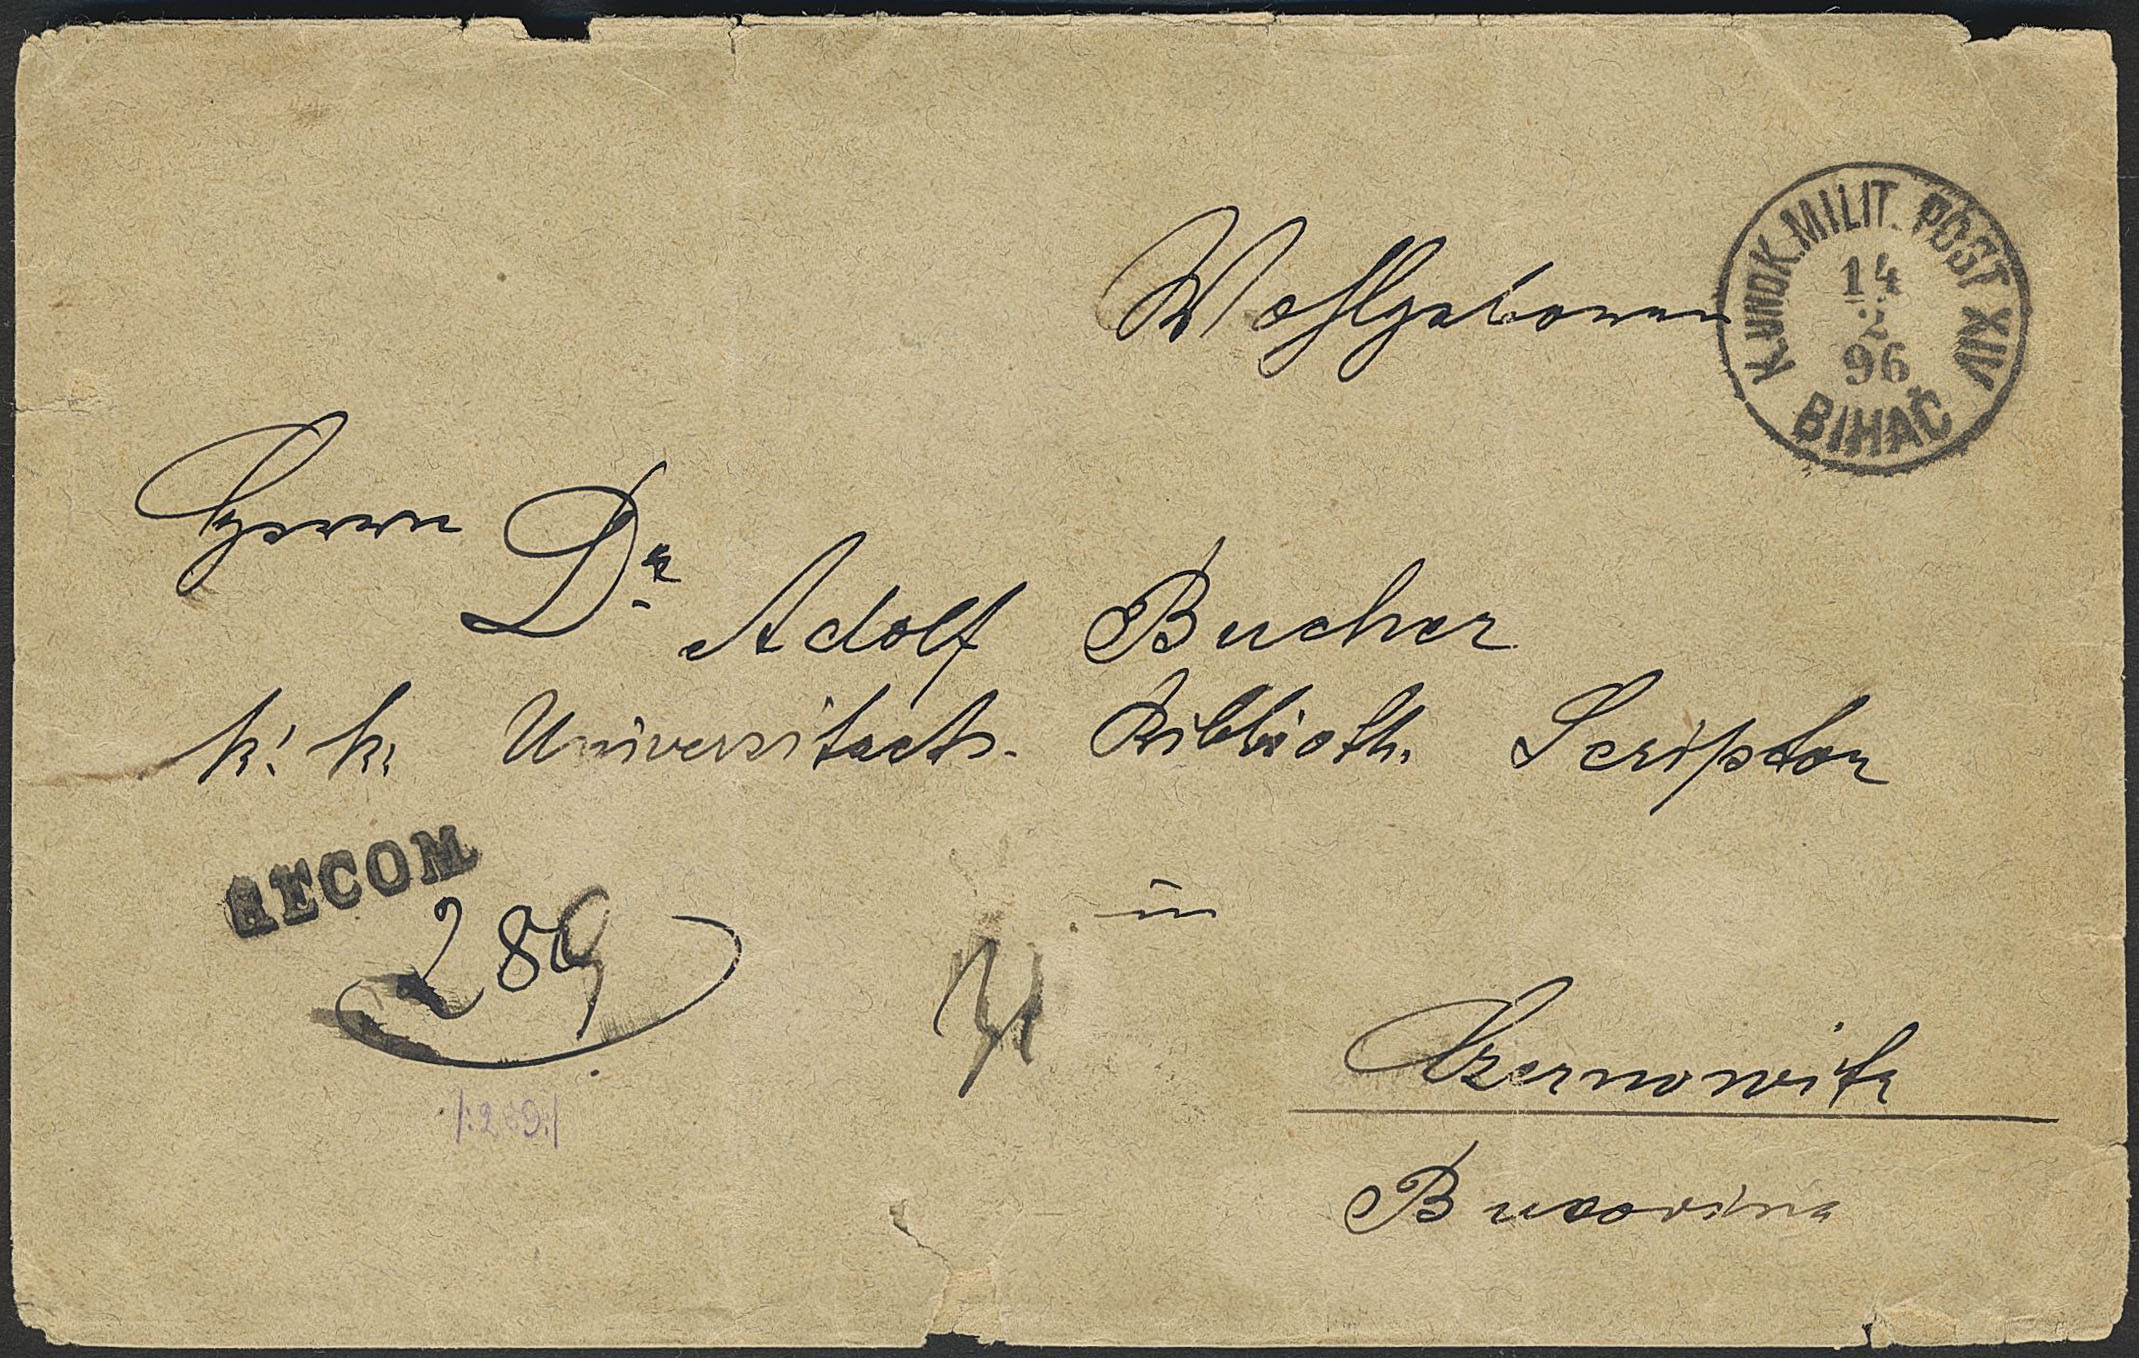 K. UND K. MILIT. POST XIV
14
2
96
BIHAĆ
Wohlgeboren
Herrn Dr. Adolf Bucher
k. k. Universitaets-Biblioth. Scriptor
RECOM
289
in
Czernowitz
Bucovina